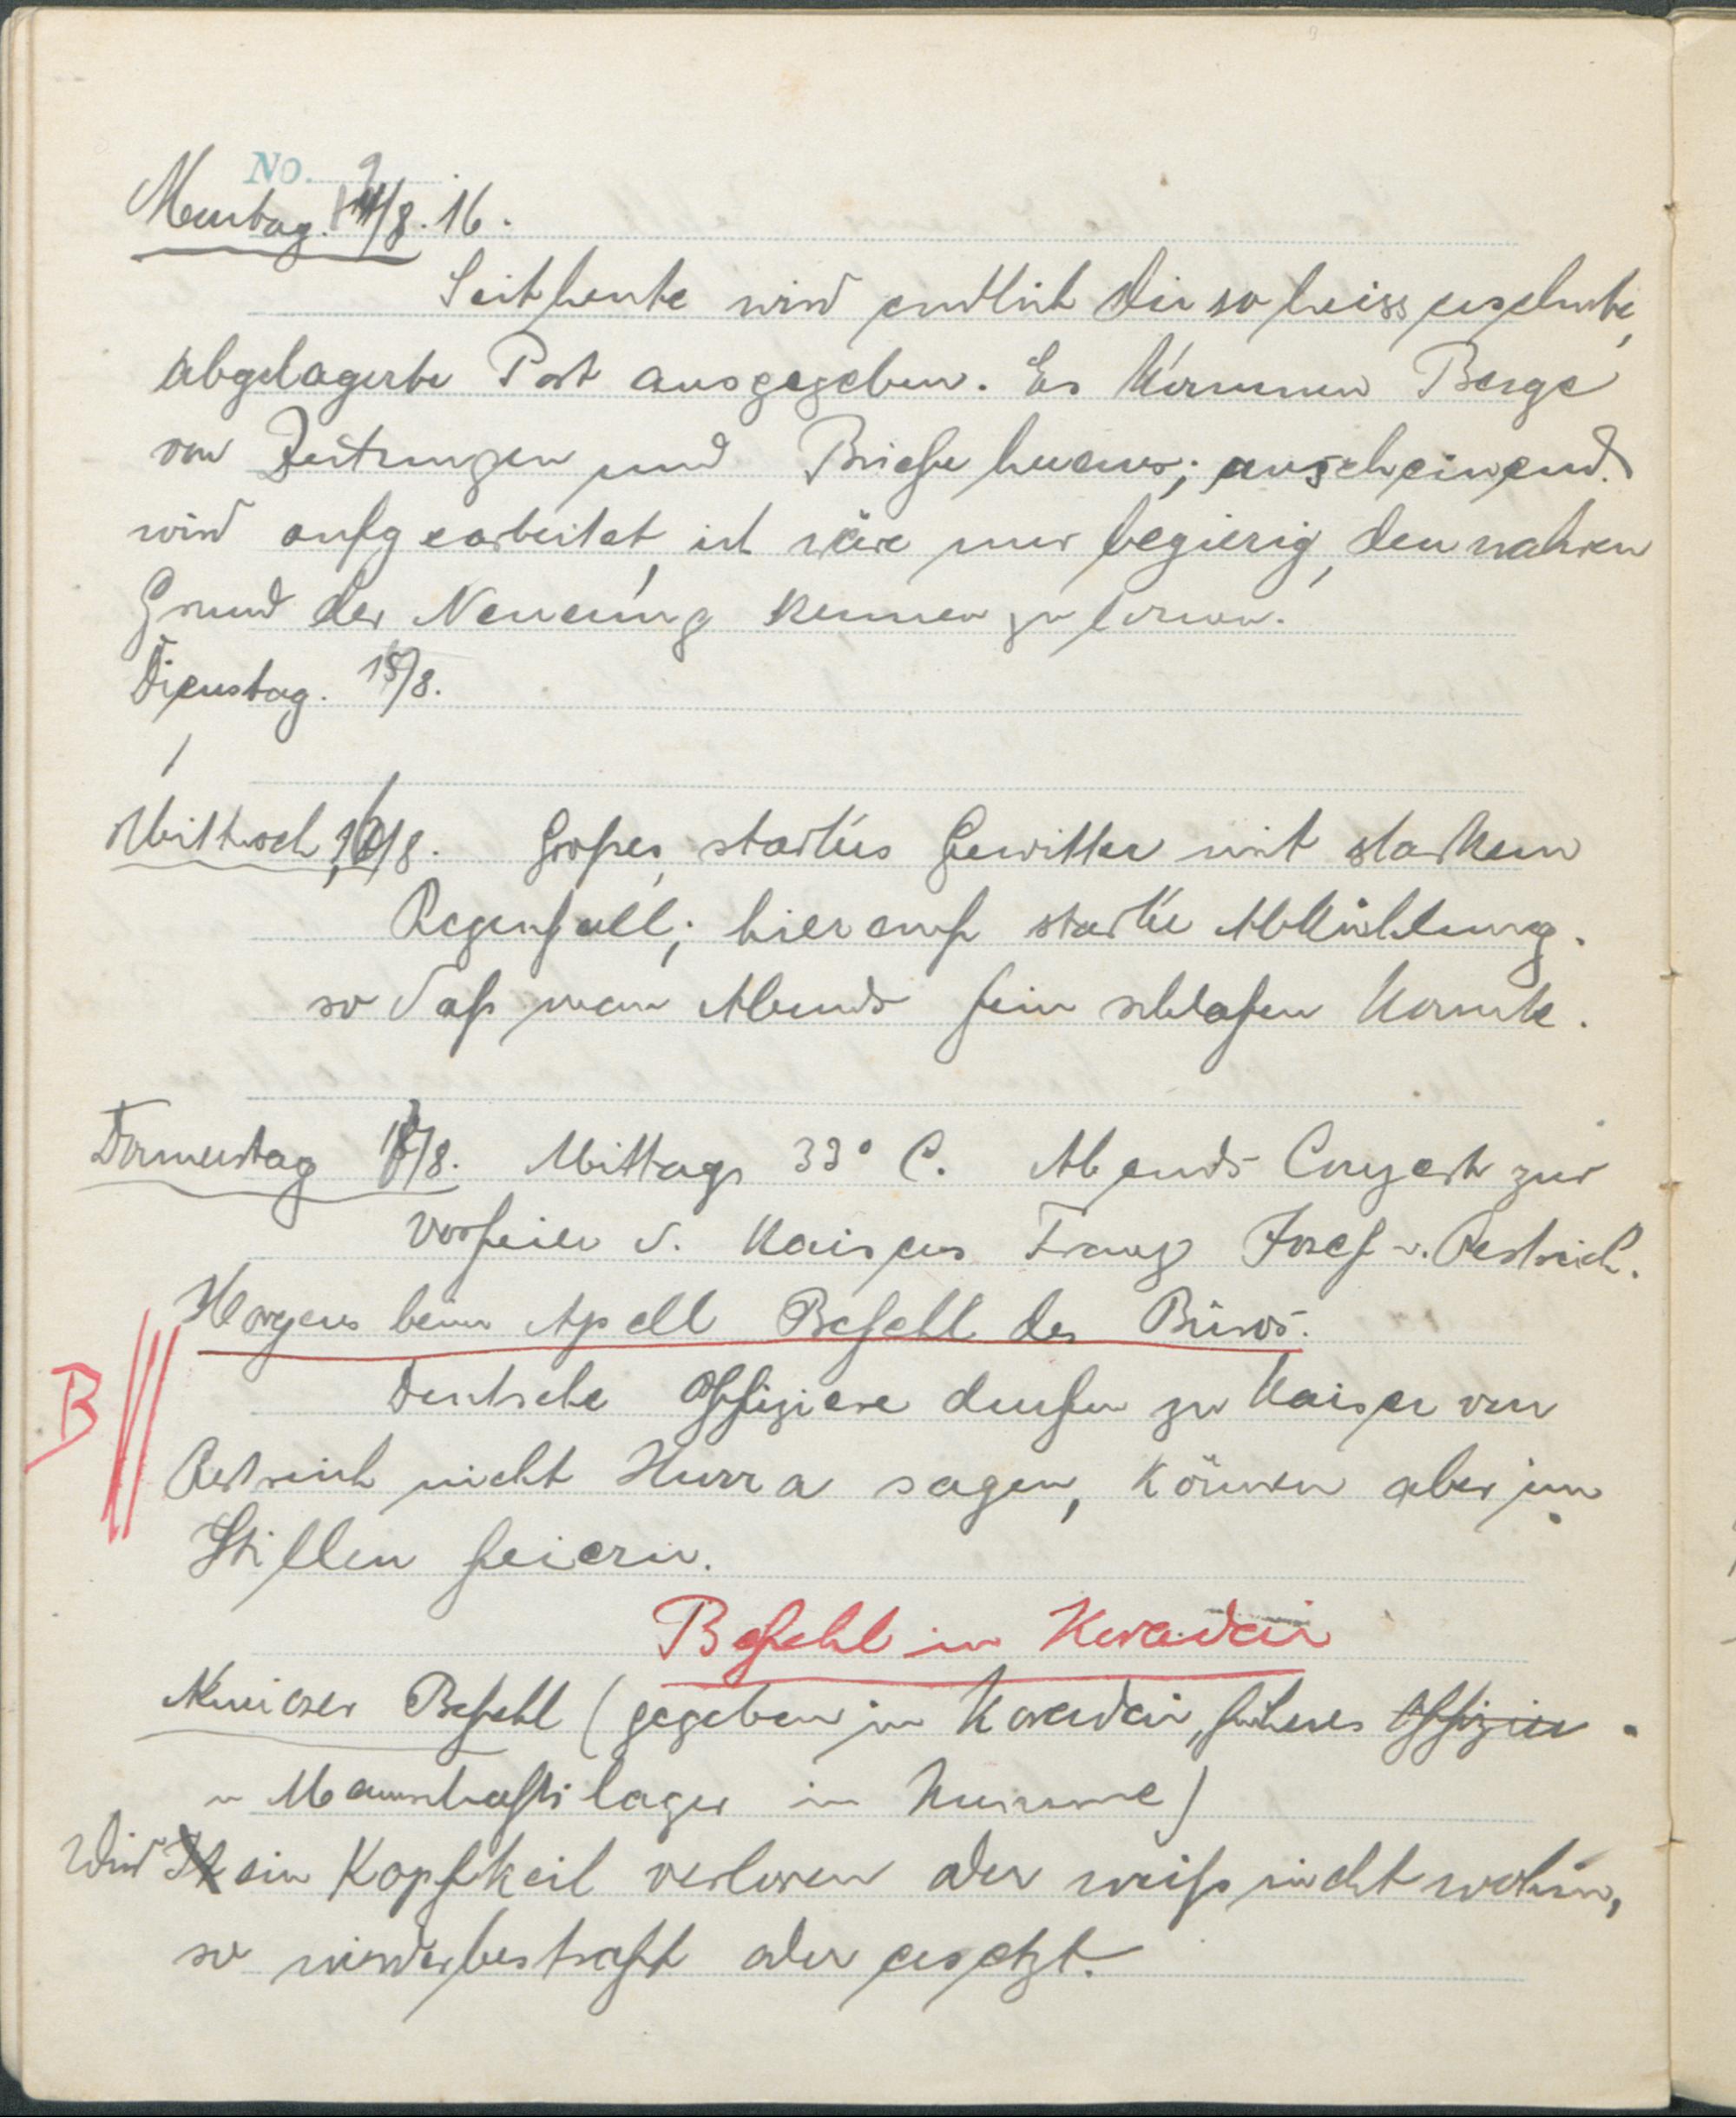 No.
Montag. 14/8. 16.
Seit heute wird endlich die so heiss ersehnte,
abgelagerte Post ausgegeben. Es kommen Berge
von Zeitungen und Briefe heraus; anscheinend
wird aufgearbeitet, ich wäre nur begierig, den wahren
Grund der Neuerung kennen zu lernen.
Dienstag. 15/8.
/
Mittwoch, 16/8. Großes, starkes Gewitter mit starkem
Regenfall; hierauf starke Abkühlung.
so daß man Abends fein schlafen konnte.
Donnerstag 17/8. Mittags 33° C. Abends Conzert zur
Vorfeier d. Kaisers Franz Josef v. Oestreich.
Morgens beim Apell Befehl des Büros.
B
Deutsche Offiziere durfen zu Kaiser von
Oestreich nicht Hurra sagen, können aber im
Stillen feiern.
Befehl in Kavadai
Befehl (gegeben in Kavadai, früheres Offizier
u Mannschaftslager in Kurume)
Wird ein Kopfkeil verloren oder weiß nicht wohin,
so wieder bestraft oder ersetzt.